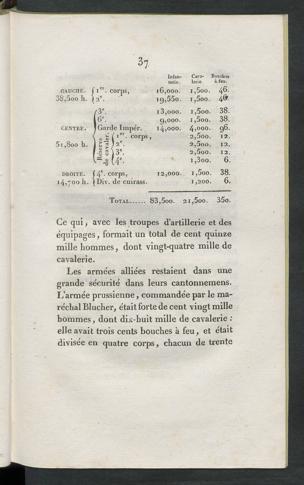 37
Infan- Cava- Bouches
terie. lerie. à feu.
GAUCHE. 1er. corps, 16,000. 1,500. 46.
38,500 h. 2e. 19,550. 1,500. 46.
3e. 13,000. 1,500. 38.
6e. 9,000. 1,500. 38.
CENTRE. Garde Impér. 14,000. 4,000. 96.
Réserves de cavaler. 1er. corps, 2,500. 12.
51,800 h. 2e. 2,500. 12.
3e. 2,500. 12.
4e. 1,300. 6.
DROITE. 4e. corps, 12,000. 1,500. 38.
14,700 h. Div. de cuirass. 1,200. 6.
TOTAL...... 83,500. 21,500. 350.
Ce qui, avec les troupes d'artillerie et des
équipages, formait un total de cent quinze
mille hommes, dont vingt-quatre mille de
cavalerie.
Les armées alliées restaient dans une
grande sécurité dans leurs cantonnemens.
L'armée prussienne, commandée par le ma-
réchal Blucher, était forte de cent vingt mille
hommes, dont dix-huit mille de cavalerie :
elle avait trois cents bouches à feu, et était
divisée en quatre corps, chacun de trente